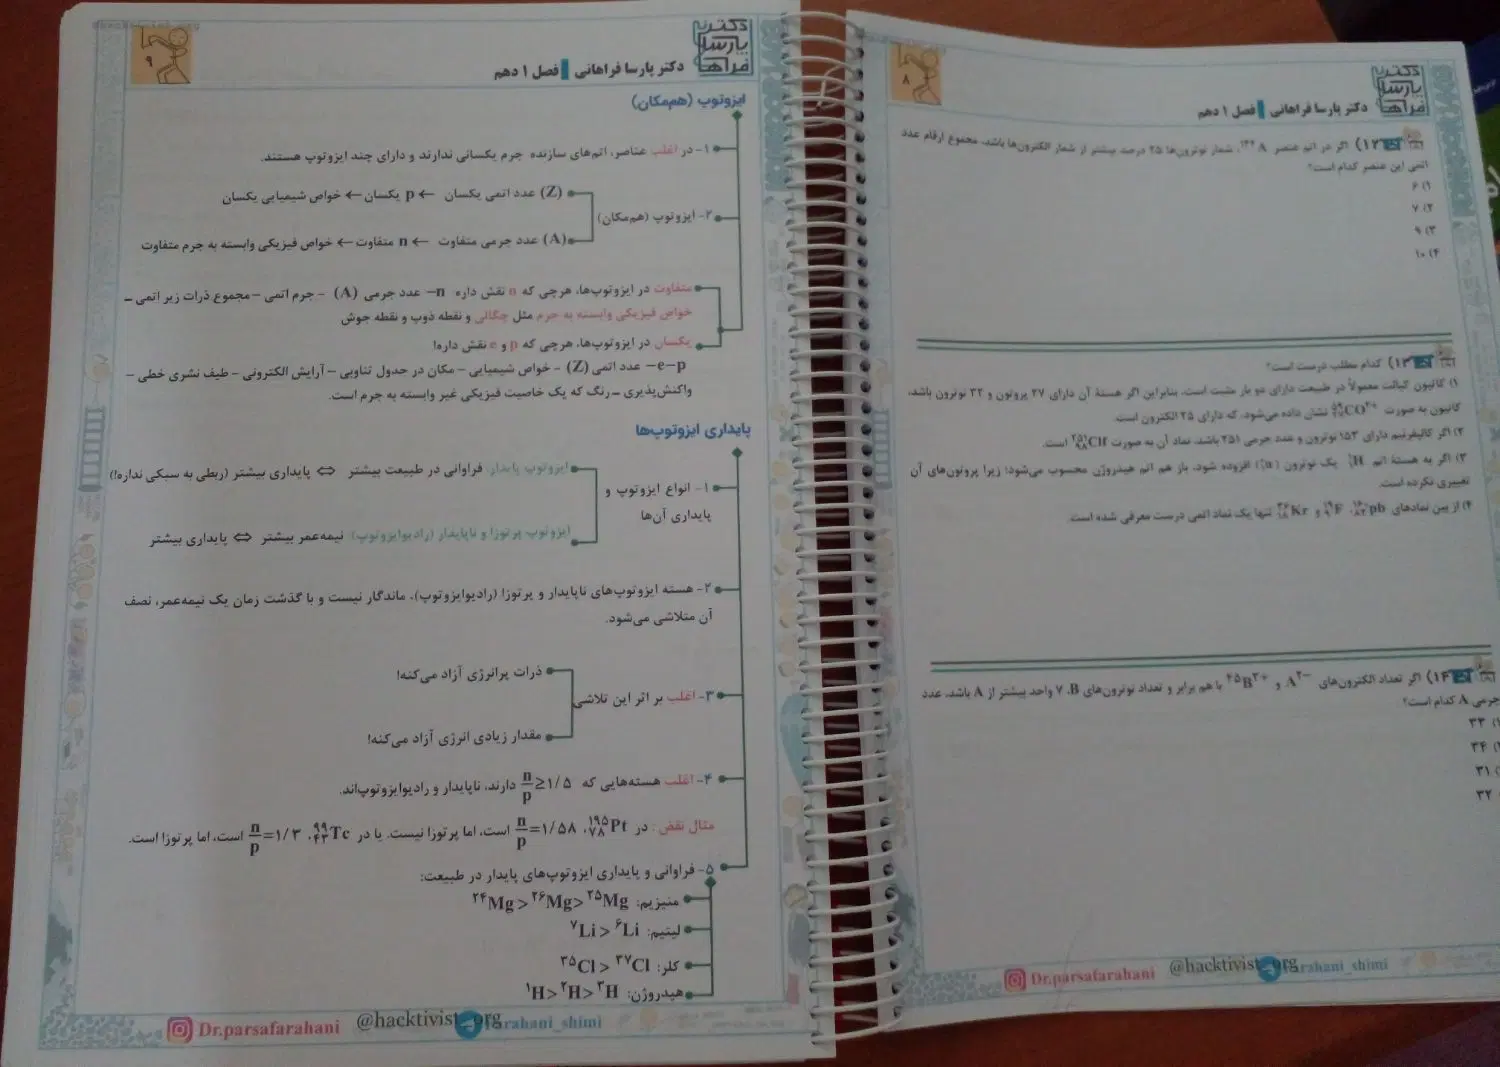 ۸
دکتر پارسا فراهانی
دکتر پارسا فراهانی | فصل ۱ دهم
۱۲) اگر در اتم عنصر ¹⁴²A، شمار نوترون‌ها ۲۵ درصد بیشتر از شمار الکترون‌ها باشد، مجموع ارقام عدد
اتمی این عنصر کدام است؟
۱) ۶
۲) ۷
۳) ۹
۴) ۱۰
۱۳) کدام مطلب درست است؟
۱) کاتیون کبالت معمولاً در طبیعت دارای دو بار مثبت است، بنابراین اگر هستهٔ آن دارای ۲۷ پروتون و ۳۲ نوترون باشد،
کاتیون به صورت ⁵⁹₂₇CO²⁺ نشان داده می‌شود، که دارای ۲۵ الکترون است.
۲) اگر کالیفرنیم دارای ۱۵۳ نوترون و عدد جرمی ۲۵۱ باشد، نماد آن به صورت ²⁵¹₉₈Cf است.
۳) اگر به هستهٔ اتم ¹₁H یک نوترون (¹₀n) افزوده شود، باز هم اتم هیدروژن محسوب می‌شود؛ زیرا پروتون‌های آن
تغییری نکرده است.
۴) از بین نمادهای pb، ¹⁹₉F و ³⁶Kr تنها یک نماد اتمی درست معرفی شده است.
۱۴) اگر تعداد الکترون‌های A²⁻ و ⁴⁵B³⁺ با هم برابر و تعداد نوترون‌های B، ۷ واحد بیشتر از A باشد، عدد
جرمی A کدام است؟
۳۳
۳۴
۳۱
۳۲
Dr.parsafarahani @hacktivist_org farahani_shimi
۹
دکتر پارسا فراهانی
دکتر پارسا فراهانی | فصل ۱ دهم
ایزوتوپ (هم‌مکان)
۱- در اغلب عناصر، اتم‌های سازنده جرم یکسانی ندارند و دارای چند ایزوتوپ هستند.
۲- ایزوتوپ (هم‌مکان)
(Z) عدد اتمی یکسان ← p یکسان ← خواص شیمیایی یکسان
(A) عدد جرمی متفاوت ← n متفاوت ← خواص فیزیکی وابسته به جرم متفاوت
متفاوت در ایزوتوپ‌ها، هرچی که n نقش داره n– عدد جرمی (A) – جرم اتمی – مجموع ذرات زیر اتمی –
خواص فیزیکی وابسته به جرم مثل چگالی و نقطه ذوب و نقطه جوش
یکسان در ایزوتوپ‌ها، هرچی که p و e نقش داره!
e-p– عدد اتمی (Z) – خواص شیمیایی – مکان در جدول تناوبی – آرایش الکترونی – طیف نشری خطی –
واکنش‌پذیری – رنگ که یک خاصیت فیزیکی غیر وابسته به جرم است.
پایداری ایزوتوپ‌ها
۱- انواع ایزوتوپ و
پایداری آن‌ها
ایزوتوپ پایدار: فراوانی در طبیعت بیشتر ⇔ پایداری بیشتر (ربطی به سبکی نداره!)
ایزوتوپ پرتوزا و ناپایدار (رادیوایزوتوپ) نیمه‌عمر بیشتر ⇔ پایداری بیشتر
۲- هسته ایزوتوپ‌های ناپایدار و پرتوزا (رادیوایزوتوپ)، ماندگار نیست و با گذشت زمان یک نیمه‌عمر، نصف
آن متلاشی می‌شود.
۳- اغلب بر اثر این تلاشی
ذرات پرانرژی آزاد می‌کنه!
مقدار زیادی انرژی آزاد می‌کنه!
۴- اغلب هسته‌هایی که n/p ≥ ۱/۵ دارند، ناپایدار و رادیوایزوتوپ‌اند.
مثال نقض: در ¹⁹⁵₇₈Pt، n/p=۱/۵۸ است، اما پرتوزا نیست. یا در ⁹⁹₄₃Tc، n/p=۱/۳ است، اما پرتوزا است.
۵- فراوانی و پایداری ایزوتوپ‌های پایدار در طبیعت:
منیزیم: ²⁴Mg > ²⁶Mg > ²⁵Mg
لیتیم: ⁷Li > ⁶Li
کلر: ³⁵Cl > ³⁷Cl
هیدروژن: ¹H > ²H > ³H
Dr.parsafarahani @hacktivist_org farahani_shimi